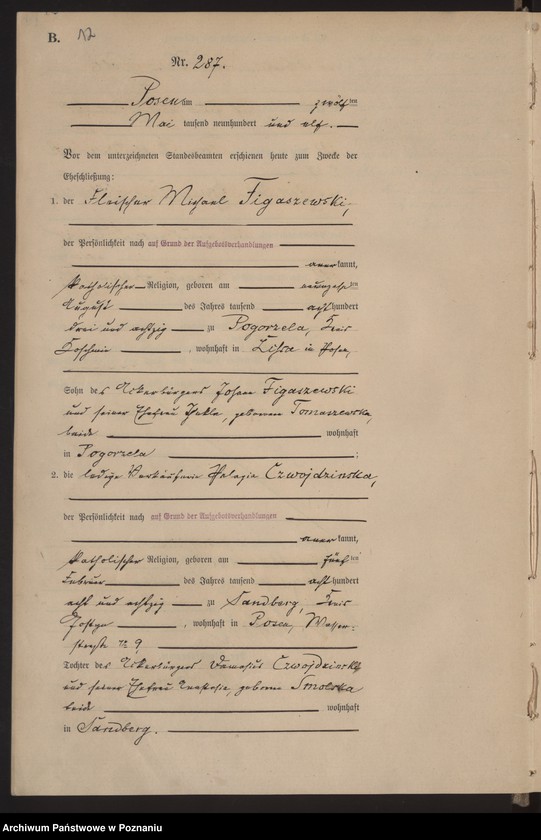 B. 12
Nr. 287.
Posen am zwölften
Mai tausend neunhundert und elf.
Vor dem unterzeichneten Standesbeamten erschienen heute zum Zwecke der
Eheschließung:
1. der Fleischer Michael Figaszewski,
der Persönlichkeit nach auf Grund der Aufgebotsverhandlungen
anerkannt,
katholischer Religion, geboren am neunzehnten
August des Jahres tausend achthundert
drei und achtzig zu Pogorzela, Kreis
Koschmin, wohnhaft in Lissa in Posen,
Sohn des Ackerbürgers Johann Figaszewski
und seiner Ehefrau Thekla, geborenen Tomaszewska,
beide wohnhaft
in Pogorzela;
2. die ledige Verkäuferin Pelagia Czwojdzinska,
der Persönlichkeit nach auf Grund der Aufgebotsverhandlungen
anerkannt,
katholischer Religion, geboren am fünften
Februar des Jahres tausend achthundert
acht und achtzig zu Sandberg, Kreis
Gostyn, wohnhaft in Posen, Wasser-
straße No 9,
Tochter des Ackerbürgers Damasius Czwojdzinski
und seiner Ehefrau Anastasia, geborenen Smolska
beide wohnhaft
in Sandberg.
Archiwum Państwowe w Poznaniu